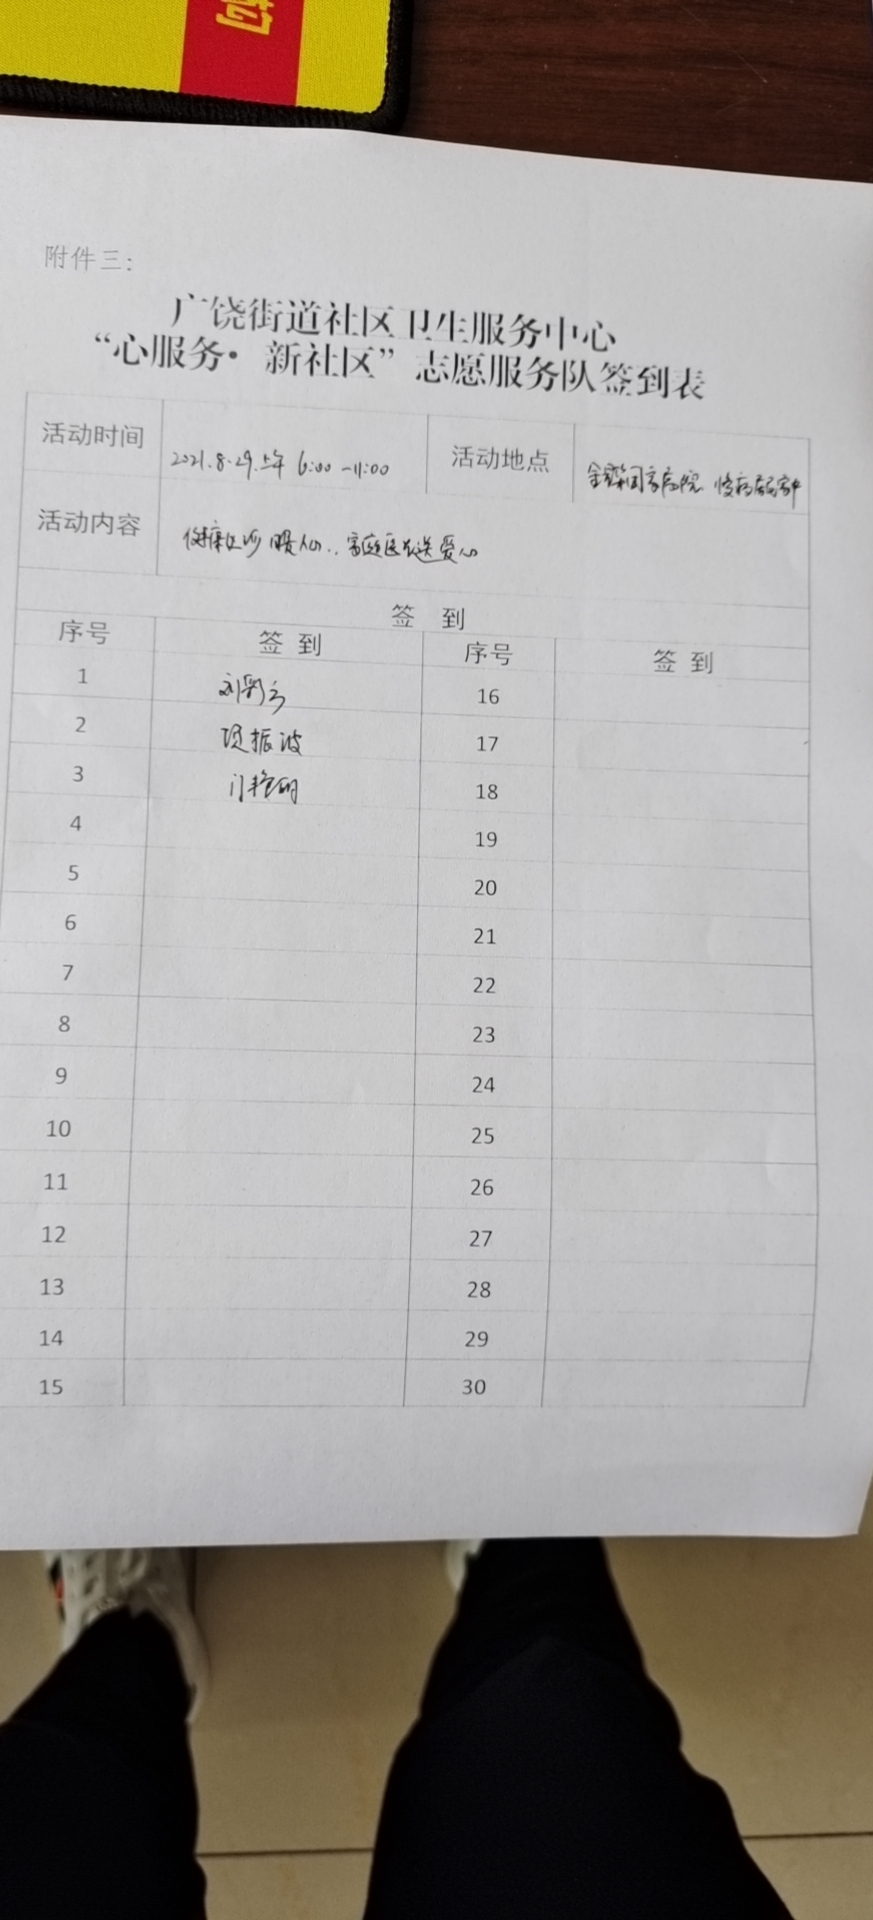 附件三:
广饶街道社区卫生服务中心
“心服务·新社区”志愿服务队签到表
活动时间 2021.8.29.上午 6:00-11:00 活动地点
活动内容 健康义诊暖人心..家庭医生送爱心
签 到
序号 签 到 序号 签 到
1 16
2 项振波 17
3 门艳丽 18
4 19
5 20
6 21
7 22
8 23
9 24
10 25
11 26
12 27
13 28
14 29
15 30